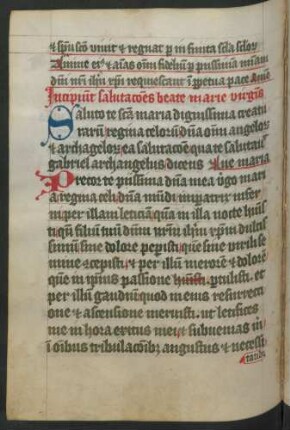 & spu sco viuit & regnat p infinita scla sclor
Anime eis & aias oim fidelium p piissimā misam
dni nri ihu xpi requiescant ī ppetua pace Amē
Incipiūt salutacōes beate marie virgīs
Saluto te scā maria dignissima creatu
rarū regina celorū dnā oīm angelor
& archāgelor ea salutacōe qua te salutauit
gabriel archangelus dicens Aue maria
Precor te piissima dnā mea v̄go mari
a regina celi dnā mūdi impatrix infer
ni per illam leticiā quā in illa nocte hūisti
ī qua filiū tuū dnm nrm ihm xpm dulcis
simū sine dolore pepisti que sine virili se
mine cōcepisti & per illū merorē & dolorē
quē in ipsius passione ptulisti et
per illū gaudiū quod in eius resurrecti
one & ascensione meruisti ut letifices
me in hora exitus mei & subuenias in
ī oībus tribulacōibz angustus & necessi
tatibz